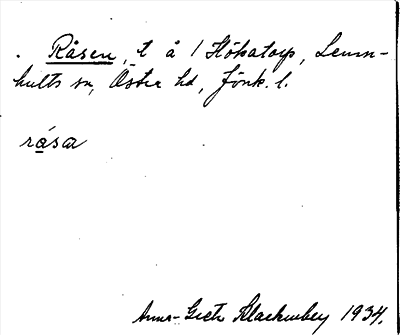 . Råsen, t å 1 Hökatorp, Lemn-
hults sn, Östra hd, Jönk. l.
råsa
Anna-Greta Hlackenberg 1934.